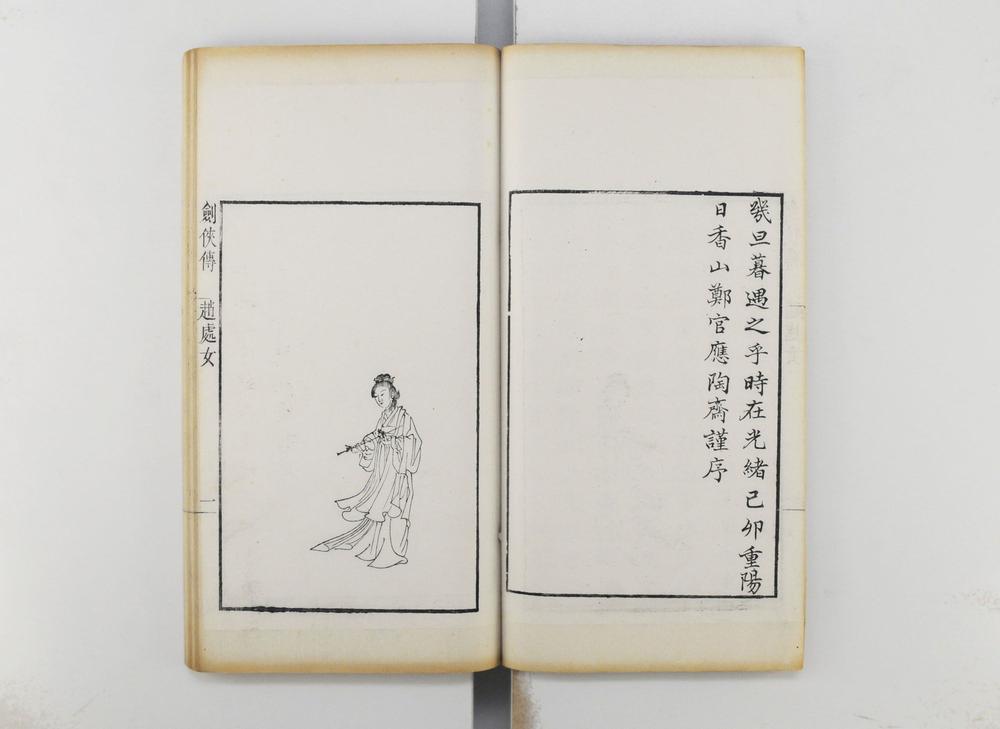 幾旦暮遇之乎時在光緒己卯重陽
日香山鄭官應陶齋謹序
劍俠傳 趙處女
二